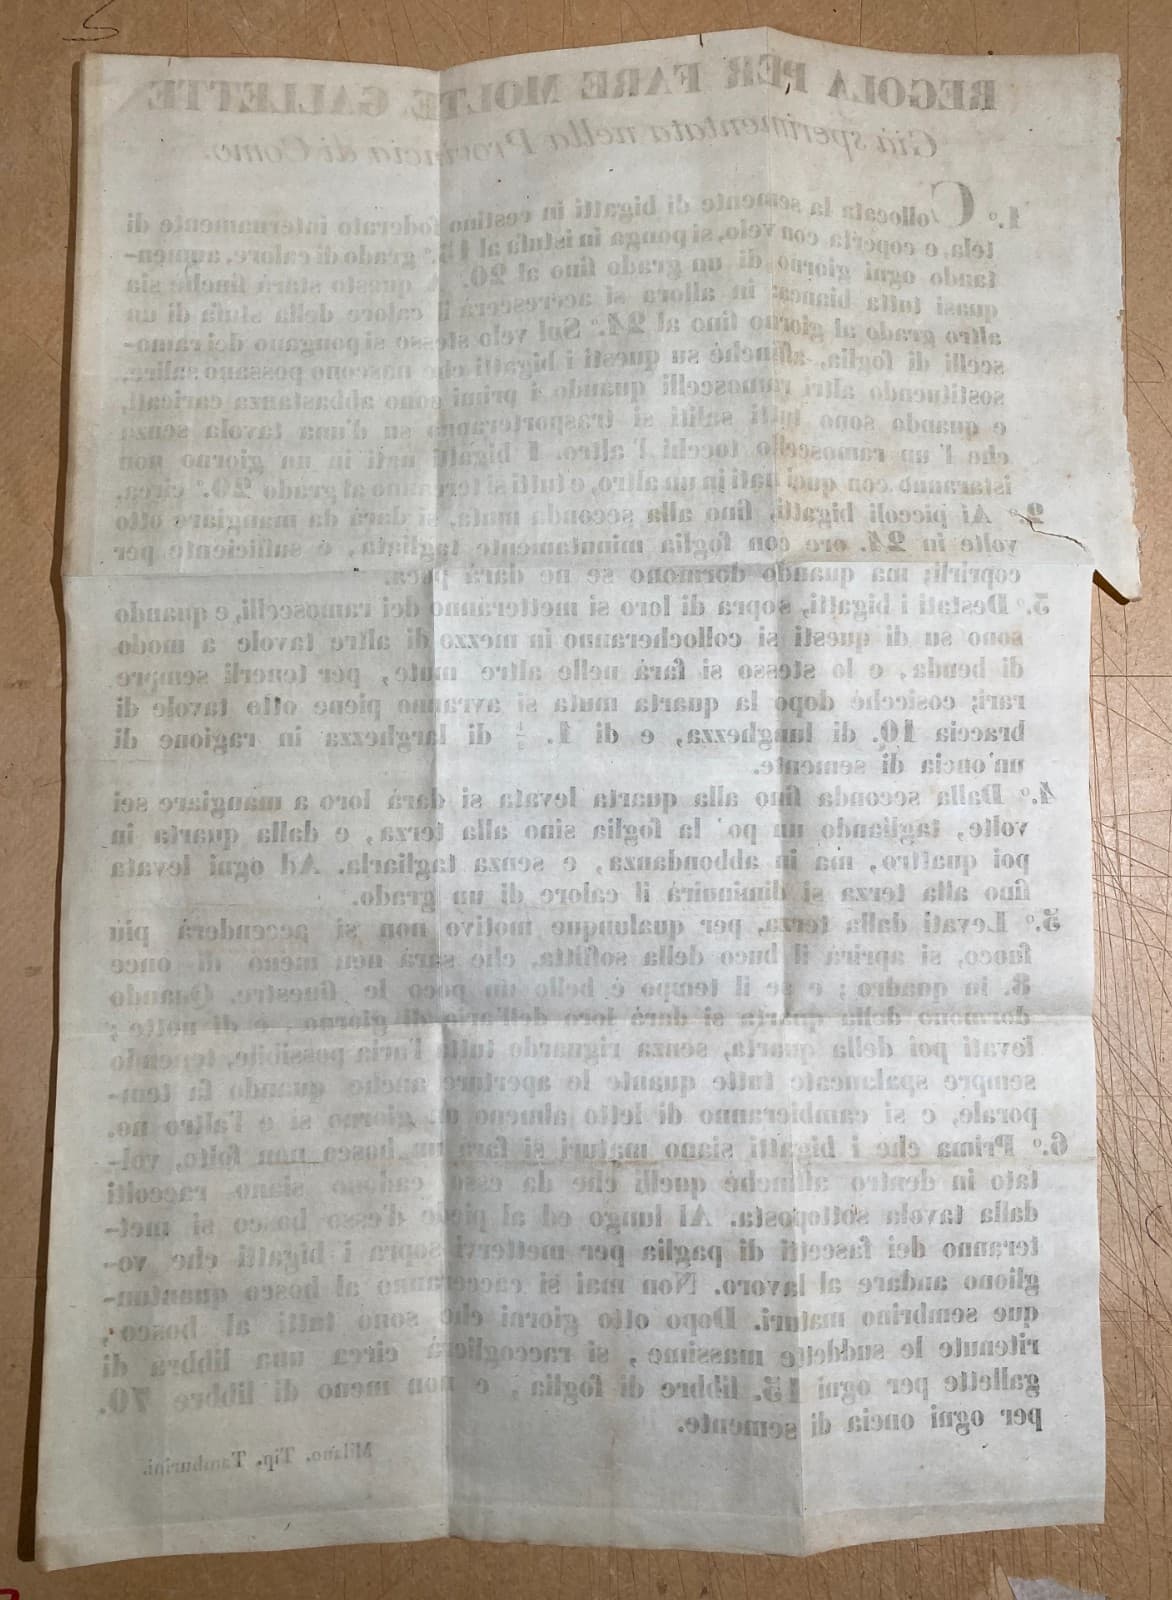 REGOLA PER FARE MOLTE GALLETTE
Già sperimentata nella Provincia di Como.
1.° Collocata la semente di bigatti in cestino foderato internamente di
tela, e coperta con velo, si ponga in istufa al 15.° grado di calore, aumen-
tando ogni giorno di un grado fino al 20. A questo starà finchè sia
quasi tutta bianca: in allora si accrescerà il calore della stufa di un
altro grado al giorno fino al 24.° Sul velo stesso si pongano dei ramo-
scelli di foglia, affinchè su questi i bigatti che nascono possano salire,
sostituendo altri ramoscelli quando i primi sono abbastanza caricati,
e quando sono tutti saliti si trasporteranno su d'una tavola senza
che l'un ramoscello tocchi l'altro. I bigatti nati in un giorno non
istaranno con quei nati in un altro, e tutti si terranno al grado 20.° circa.
2. Ai piccoli bigatti, fino alla seconda muta, si darà da mangiare otto
volte in 24. ore con foglia minutamente tagliata, e sufficiente per
coprirli; ma quando dormono se ne darà poca.
3.° Destati i bigatti, sopra di loro si metteranno dei ramoscelli, e quando
sono su di questi si collocheranno in mezzo di altre tavole a modo
di benda, e lo stesso si farà nelle altre mute, per tenerli sempre
rari; cosicchè dopo la quarta muta si avranno piene otto tavole di
braccia 10. di lunghezza, e di 1. ½ di larghezza in ragione di
un'oncia di semente.
4.° Dalla seconda fino alla quarta levata si darà loro a mangiare sei
volte, tagliando un po' la foglia sino alla terza, e dalla quarta in
poi quattro, ma in abbondanza, e senza tagliarla. Ad ogni levata
fino alla terza si diminuirà il calore di un grado.
5.° Levati dalla terza, per qualunque motivo non si accenderà più
fuoco, si aprirà il buco della soffitta, che sarà non meno di once
8. in quadro; e se il tempo è bello un poco le finestre. Quando
dormono della quarta si darà loro dell'aria di giorno, e di notte;
levati poi della quarta, senza riguardo tutta l'aria possibile, tenendo
sempre spalancate tutte quante le aperture anche quando fa tem-
porale, e si cambieranno di letto almeno un giorno si e l'altro no.
6.° Prima che i bigatti siano maturi si farà un bosco non folto, vol-
tato in dentro affinchè quelli che da esso cadono siano raccolti
dalla tavola sottoposta. Al lungo ed al piede d'esso bosco si met-
teranno dei fascetti di paglia per mettervi sopra i bigatti che vo-
gliono andare al lavoro. Non mai si cacceranno al bosco quantun-
que sembrino maturi. Dopo otto giorni che sono tutti al bosco,
ritenute le suddette massime, si raccoglierà circa una libbra di
gallette per ogni 15. libbre di foglia, e non meno di libbre 70.
per ogni oncia di semente.
Milano, Tip. Tamburini.